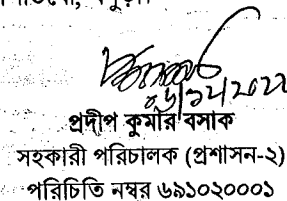 ০৬/১২/২০২২
প্রদীপ কুমার বসাক
সহকারী পরিচালক (প্রশাসন-২)
পরিচিতি নম্বর ৬৯১০২০০০১